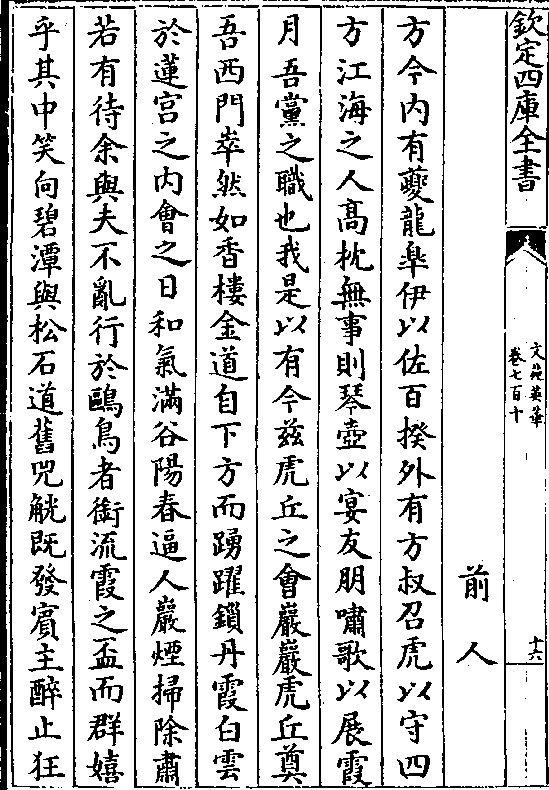 欽定四庫全書
文苑英華
卷七百十
十六
前人
方今内有夔龍臯伊以佐百揆外有方叔召虎以守四
方江海之人髙枕無事則琴壺以宴友朋嘯歌以展霞
月吾黨之職也我是以有今兹虎丘之會巖巖虎丘奠
吾西門崒然如香樓金道自下方而踴躍鎖丹霞白雲
於蓮宫之内會之日和氣滿谷陽春逼人巖煙掃除肅
若有待余與夫不亂行於鷗鳥者銜流霞之盃而群嬉
乎其中笑向碧潭與松石道舊兕觥既發賓主醉止狂